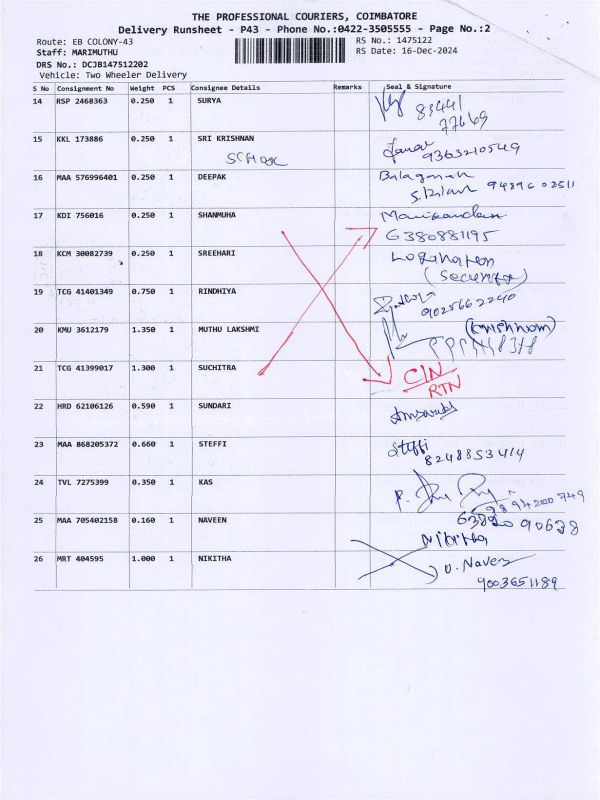 THE PROFESSIONAL COURIERS, COIMBATORE
Delivery Runsheet - P43 - Phone No.:0422-3505555 - Page No.:2
Route: EB COLONY-43 RS No.: 1475122
Staff: MARIMUTHU RS Date: 16-Dec-2024
DRS No.: DCJB147512202
Vehicle: Two Wheeler Delivery
S No Consignment No Weight PCS Consignee Details Remarks Seal & Signature
14 RSP 2468363 0.250 1 SURYA 83441
77669
15 KKL 173886 0.250 1 SRI KRISHNAN
SCHOOL 9363210549
16 MAA 576996401 0.250 1 DEEPAK Balaganesh
17 KDI 756016 0.250 1 SHANMUHA Manikandan
6380881195
18 KCM 30082739 0.250 1 SREEHARI Loganathan
(Security)
19 TCG 41401349 0.750 1 RINDHIYA 9025662240
20 KMU 3612179 1.350 1 MUTHU LAKSHMI
21 TCG 41399017 1.300 1 SUCHITRA CIN
RTN
22 HRD 62106126 0.590 1 SUNDARI
23 MAA 868205372 0.660 1 STEFFI Steffi
8248853414
24 TVL 7275399 0.350 1 KAS
25 MAA 705402158 0.160 1 NAVEEN
Nikitha
26 MRT 404595 1.000 1 NIKITHA U. Naveen
9003651189